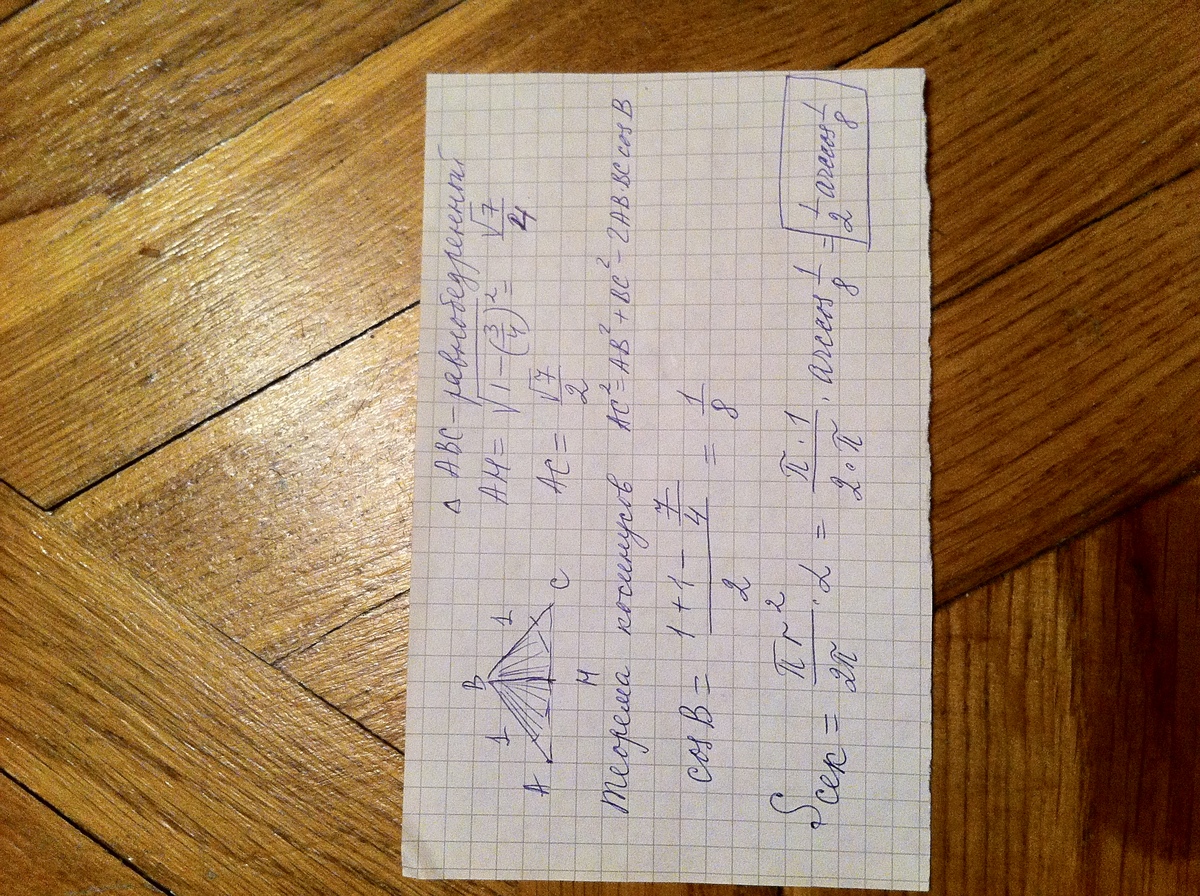 B
1 1
A H C
Δ ABC - равнобедренный
AH = √(1-(3/4)²) = √7/4
AC = √7/2
Теорема косинусов AC² = AB² + BC² - 2AB·BC cos B
cos B = (1+1-7/4)/2 = 1/8
Sсек = πr²/2π · α = π·1/2·π · arccos 1/8 = 1/2 arccos 1/8